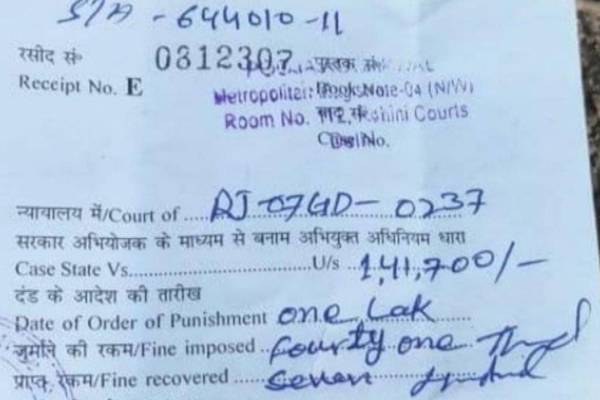 S/A - 644010-11
रसीद सं॰ 0812307
Receipt No. E
Metropolitan
04 (N/W)
Room No. 112, Rohini Courts
न्यायालय में/Court of ..... RJ-07GD-0237
सरकार अभियोजक के माध्यम से बनाम अभियुक्त अधिनियम धारा
Case State Vs...............................U/s ..1,41,700/-
दंड के आदेश की तारीख
Date of Order of Punishment one Lak
जुर्माने की रकम/Fine imposed .. fourty one
प्राप्त रकम/Fine recovered ..... Seven